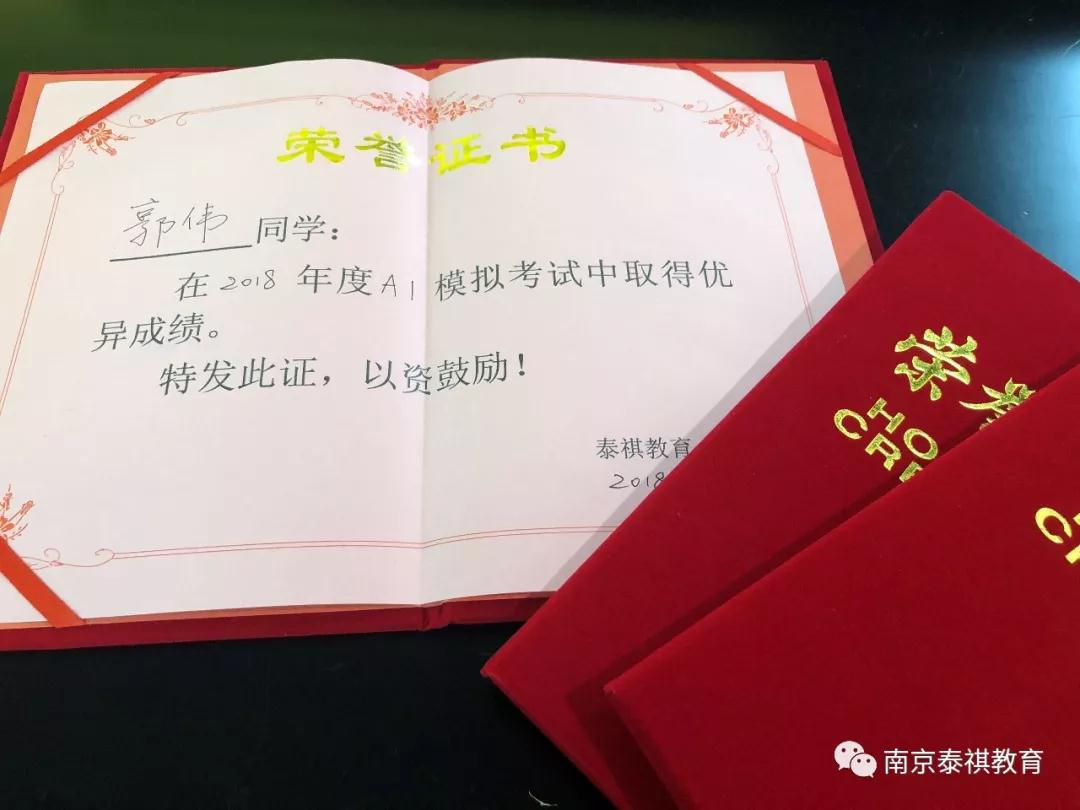 荣誉证书
郭伟 同学：
在2018年度A1模拟考试中取得优
异成绩。
特发此证，以资鼓励！
泰祺教育
2018
荣
HO
C
CR
C
南京泰祺教育